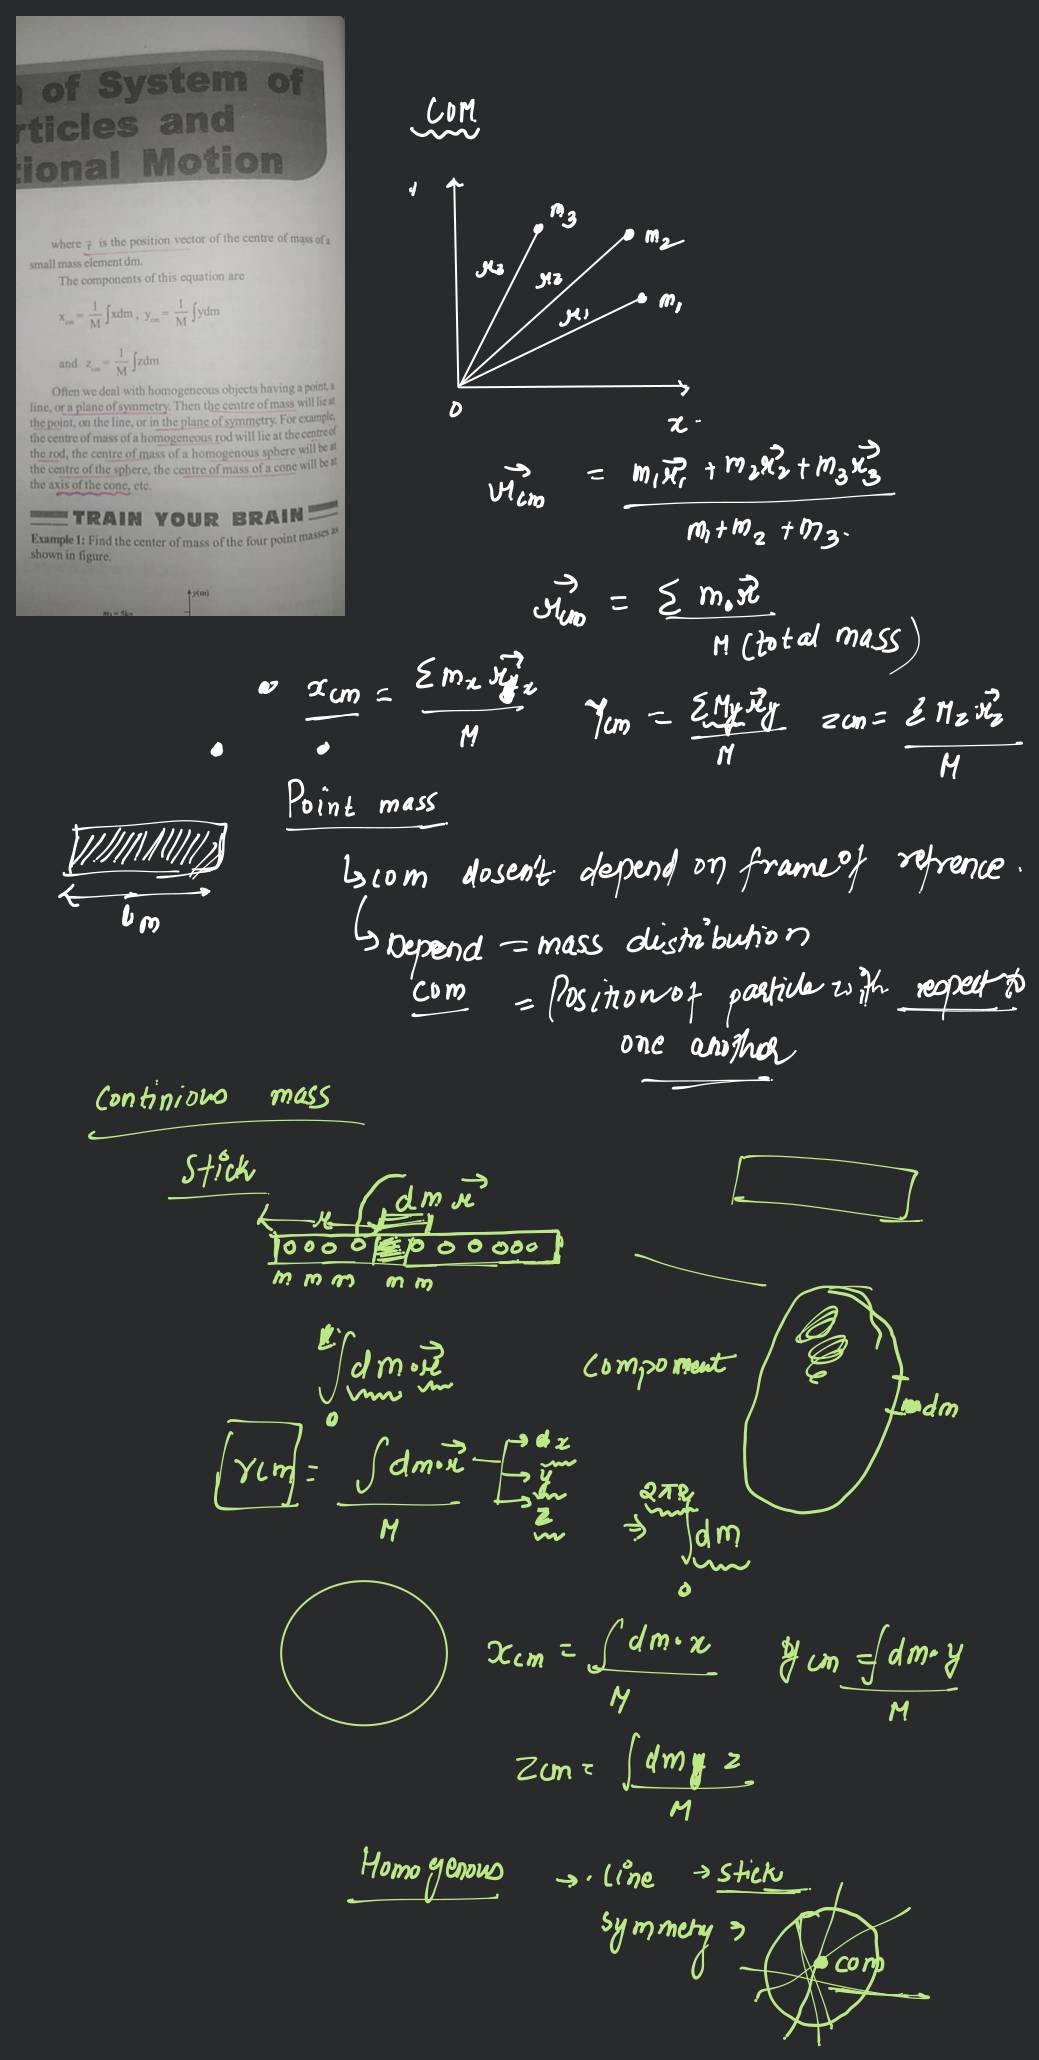 of System of
rticles and
ional Motion
where r⃗ is the position vector of the centre of mass of a
small mass element dm.
The components of this equation are
x_cm = 1/M ∫xdm, y_cm = 1/M ∫ydm
and z_cm = 1/M ∫zdm
Often we deal with homogeneous objects having a point, a
line, or a plane of symmetry. Then the centre of mass will lie at
the point, on the line, or in the plane of symmetry. For example,
the centre of mass of a homogeneous rod will lie at the centre of
the rod, the centre of mass of a homogenous sphere will be at
the centre of the sphere, the centre of mass of a cone will be at
the axis of the cone, etc.
TRAIN YOUR BRAIN
Example 1: Find the center of mass of the four point masses as
shown in figure.
y(m)
COM
m3
m2
m1
r3 r2 r1
0
x
r⃗cm = (m1r⃗1 + m2r⃗2 + m3r⃗3) / (m1 + m2 + m3)
r⃗cm = Σ m.r⃗ / M (total mass)
xcm = Σ mx r⃗x / M Ycm = Σ My r⃗y / M zcm = Σ Mz r⃗z / M
Point mass
↳ com dosen't depend on frame of refrence.
↳ Depend = mass distribution
com = Position of particle with respect to
one another
Continious mass
Stick
dm r⃗
r
m m m m m
∫ dm·r⃗
0
Compoment
dm
rcm = ∫ dm·r⃗ / M → dx
→ y
→ z
⇒ ∫ dm
2πR
0
xcm = ∫ dm·x / M ycm = ∫ dm·y / M
zcm = ∫ dm z / M
Homogenous → line → stick
symmetry →
com